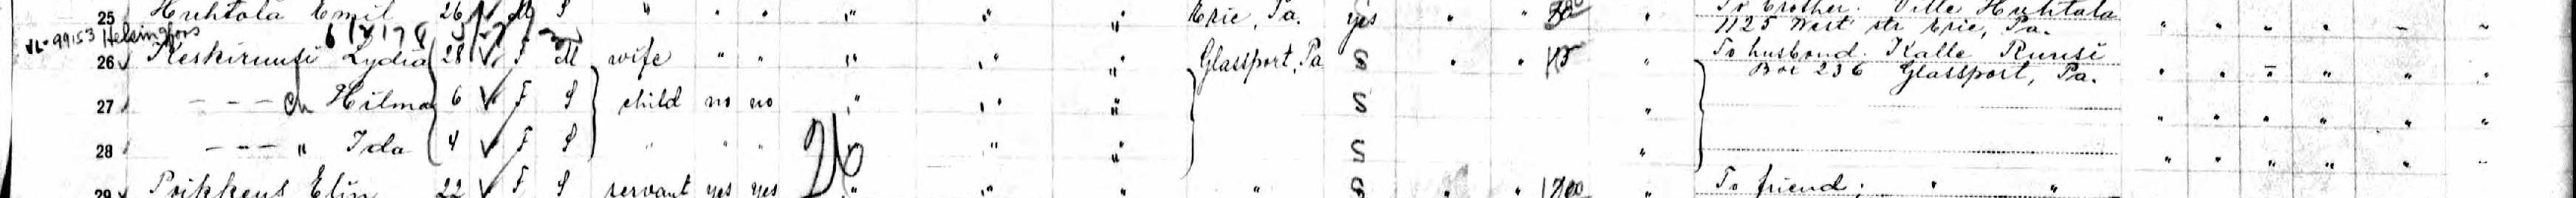 25 Huhtala Emil 26 M S " " " " " " Erie, Pa. yes " " " To brother. Ville Huhtala
1125 West str Erie, Pa.
VL-99153 Helsingfors
26 Keskiruusi Lydia 28 F M wife " " " " " Glassport, Pa S " " 15 " To husbond. Kalle Ruusi
Box 236 Glassport, Pa.
27 - - - Hilma 6 F S child no no " " " S "
28 - - - " Ida 4 F S " " " " " " S "
26
29 Elin 22 F S servant yes yes " " " " S " " " To friend: " "